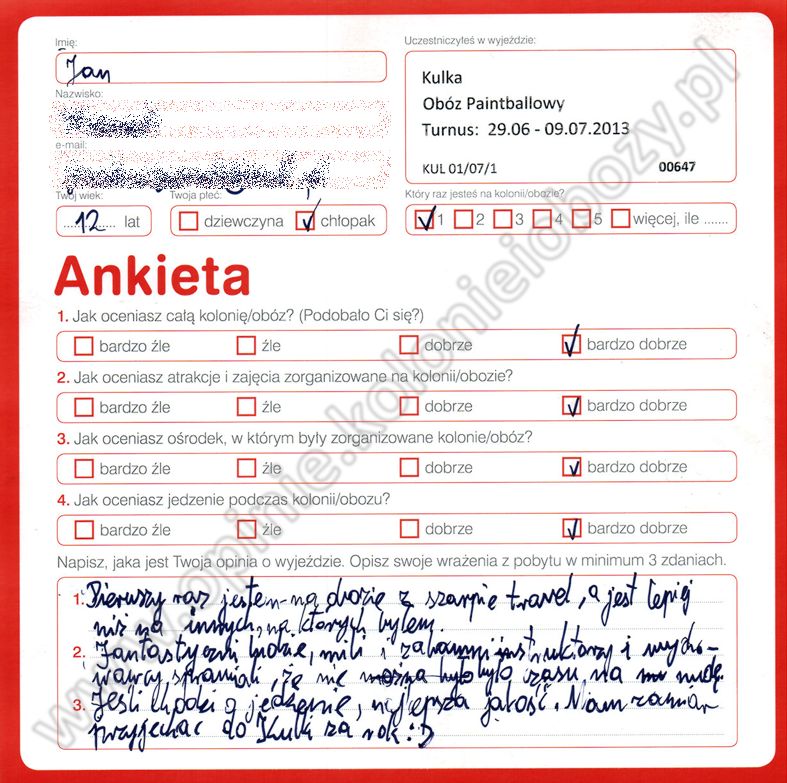 Imię:
Jan
Uczestniczyłeś w wyjeździe:
Kulka
Obóz Paintballowy
Turnus: 29.06 - 09.07.2013
KUL 01/07/1 00647
Nazwisko:
e-mail:
Twój wiek:
12 lat
Twoja płeć:
dziewczyna chłopak
Który raz jesteś na kolonii/obozie?
1 2 3 4 5 więcej, ile .......
Ankieta
1. Jak oceniasz całą kolonię/obóz? (Podobało Ci się?)
bardzo źle źle dobrze bardzo dobrze
2. Jak oceniasz atrakcje i zajęcia zorganizowane na kolonii/obozie?
bardzo źle źle dobrze bardzo dobrze
3. Jak oceniasz ośrodek, w którym były zorganizowane kolonie/obóz?
bardzo źle źle dobrze bardzo dobrze
4. Jak oceniasz jedzenie podczas kolonii/obozu?
bardzo źle źle dobrze bardzo dobrze
Napisz, jaka jest Twoja opinia o wyjeździe. Opisz swoje wrażenia z pobytu w minimum 3 zdaniach.
1. Pierwszy raz jestem na obozie z szarpie travel, a jest lepiej
niż na innych, na których byłem.
2. Fantastyczni ludzie, mili i instruktorzy i wycho-
wawcy sprawiali, że nie było czasu na nudę.
3. Jeśli chodzi o jedzenie, najlepsza jakość. Mam zamiar
przyjechać do Kulki za rok :D
www.opinie.kolonieiobozy.pl